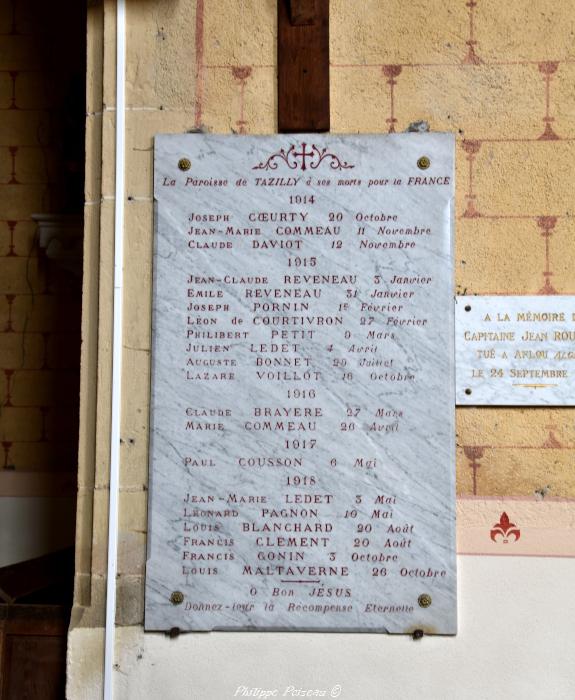 La Paroisse de TAZILLY à ses morts pour la FRANCE
1914
JOSEPH CŒURTY 20 Octobre
JEAN-MARIE COMMEAU 11 Novembre
CLAUDE DAVIOT 12 Novembre
1915
JEAN-CLAUDE REVENEAU 3 Janvier
EMILE REVENEAU 31 Janvier
JOSEPH PORNIN 1er Février
LÉON de COURTIVRON 27 Février
PHILIBERT PETIT 9 Mars
JULIEN LEDET 4 Avril
AUGUSTE BONNET 20 Juillet
LAZARE VOILLOT 16 Octobre
1916
CLAUDE BRAYERE 27 Mars
MARIE COMMEAU 26 Avril
1917
PAUL COUSSON 6 Mai
1918
JEAN-MARIE LEDET 3 Mai
LÉONARD PAGNON 10 Mai
LOUIS BLANCHARD 20 Août
FRANCIS CLÉMENT 20 Août
FRANCIS GONIN 3 Octobre
LOUIS MALTAVERNE 26 Octobre
O BON JÉSUS
Donnez-leur la Récompense Eternelle
A LA MÉMOIRE D
CAPITAINE JEAN ROU
TUÉ A AFLOU
LE 24 SEPTEMBRE
Philippe Poiseau ©